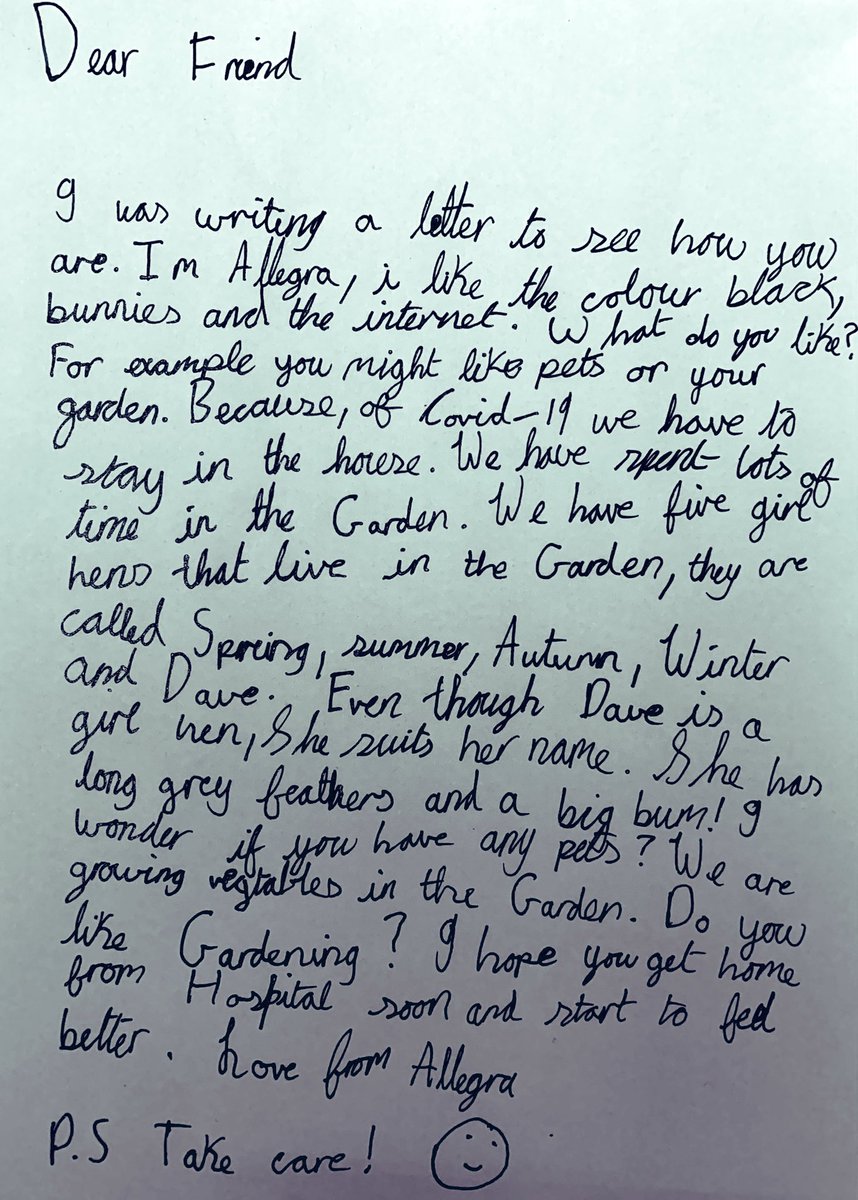 Dear Friend
I was writing a letter to see how you
are. Im Allegra, i like the colour black,
bunnies and the internet. What do you like?
For example you might like pets or your
garden. Because, of Covid-19 we have to
stay in the house. We have spent lots of
time in the Garden. We have five girl
hens that live in the Garden, they are
called Spring, summer, Autumn, Winter
and Dave. Even though Dave is a
girl hen, She suits her name. She has
long grey feathers and a big bum! I
wonder if you have any pets? We are
growing vegtables in the Garden. Do you
like Gardening? I hope you get home
from Hospital soon and start to feel
better. Love from Allegra
P.S Take care!